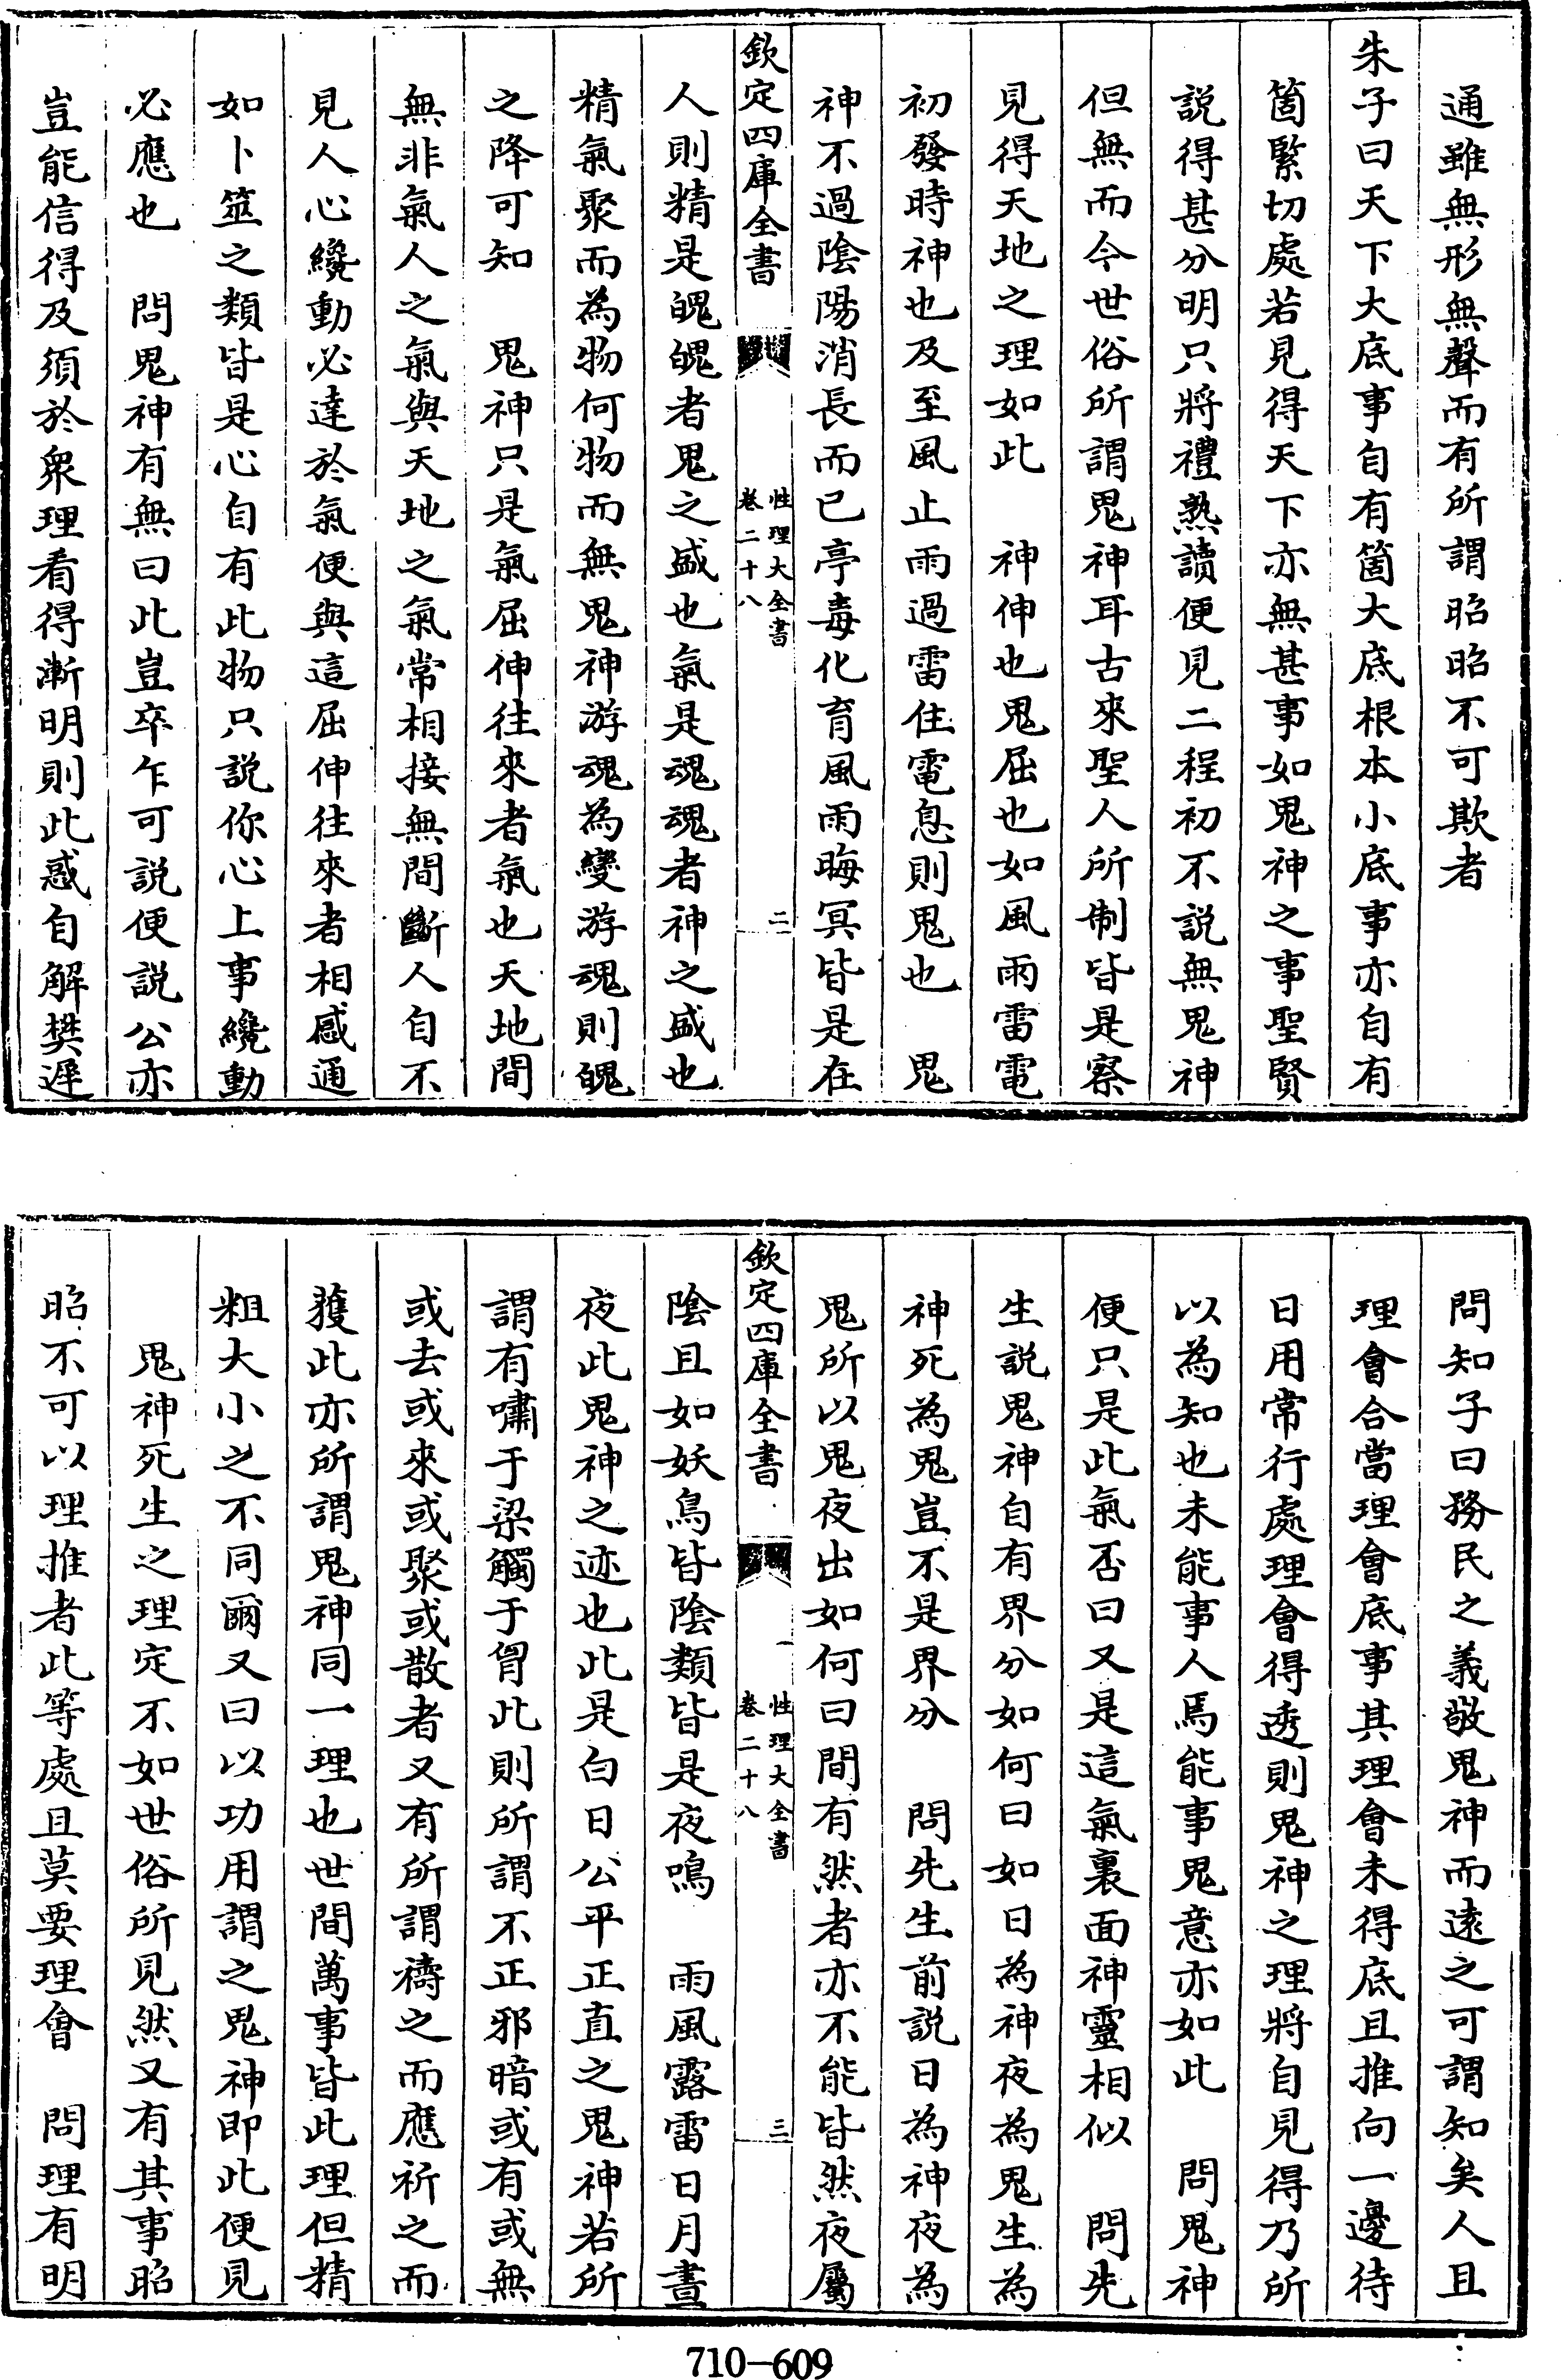 通雖無形無聲而有所謂昭昭不可欺者
朱子曰天下大底事自有箇大底根本小底事亦自有
箇緊切處若見得天下亦無甚事如鬼神之事聖賢
説得甚分明只將禮熟讀便見二程初不説無鬼神
但無而今世俗所謂鬼神耳古來聖人所制皆是察
見得天地之理如此　神伸也鬼屈也如風雨雷電
初發時神也及至風止雨過雷住電息則鬼也　鬼
神不過陰陽消長而已亭毒化育風雨晦冥皆是在
欽定四庫全書
性理大全書
卷二十八
二
人則精是魄魄者鬼之盛也氣是魂魂者神之盛也
精氣聚而為物何物而無鬼神游魂為變游魂則魄
之降可知　鬼神只是氣屈伸往來者氣也天地間
無非氣人之氣與天地之氣常相接無間斷人自不
見人心纔動必達於氣便與這屈伸往來者相感通
如卜筮之類皆是心自有此物只説你心上事纔動
必應也　問鬼神有無曰此豈卒乍可説便説公亦
豈能信得及須於衆理看得漸明則此惑自解樊遲
問知子曰務民之義敬鬼神而逺之可謂知矣人且
理會合當理會底事其理會未得底且推向一邊待
日用常行處理會得透則鬼神之理將自見得乃所
以為知也未能事人焉能事鬼意亦如此　問鬼神
便只是此氣否曰又是這氣裏面神靈相似　問先
生説鬼神自有界分如何曰如日為神夜為鬼生為
神死為鬼豈不是界分　問先生前説日為神夜為
鬼所以鬼夜出如何曰間有然者亦不能皆然夜屬
欽定四庫全書
性理大全書
卷二十八
三
陰且如妖鳥皆陰類皆是夜鳴　雨風露雷日月晝
夜此鬼神之迹也此是白日公平正直之鬼神若所
謂有嘯于梁觸于胷此則所謂不正邪暗或有或無
或去或來或聚或散者又有所謂禱之而應祈之而
獲此亦所謂鬼神同一理也世間萬事皆此理但精
粗大小之不同爾又曰以功用謂之鬼神即此便見
鬼神死生之理定不如世俗所見然又有其事昭
昭不可以理推者此等處且莫要理會　問理有明
710-609